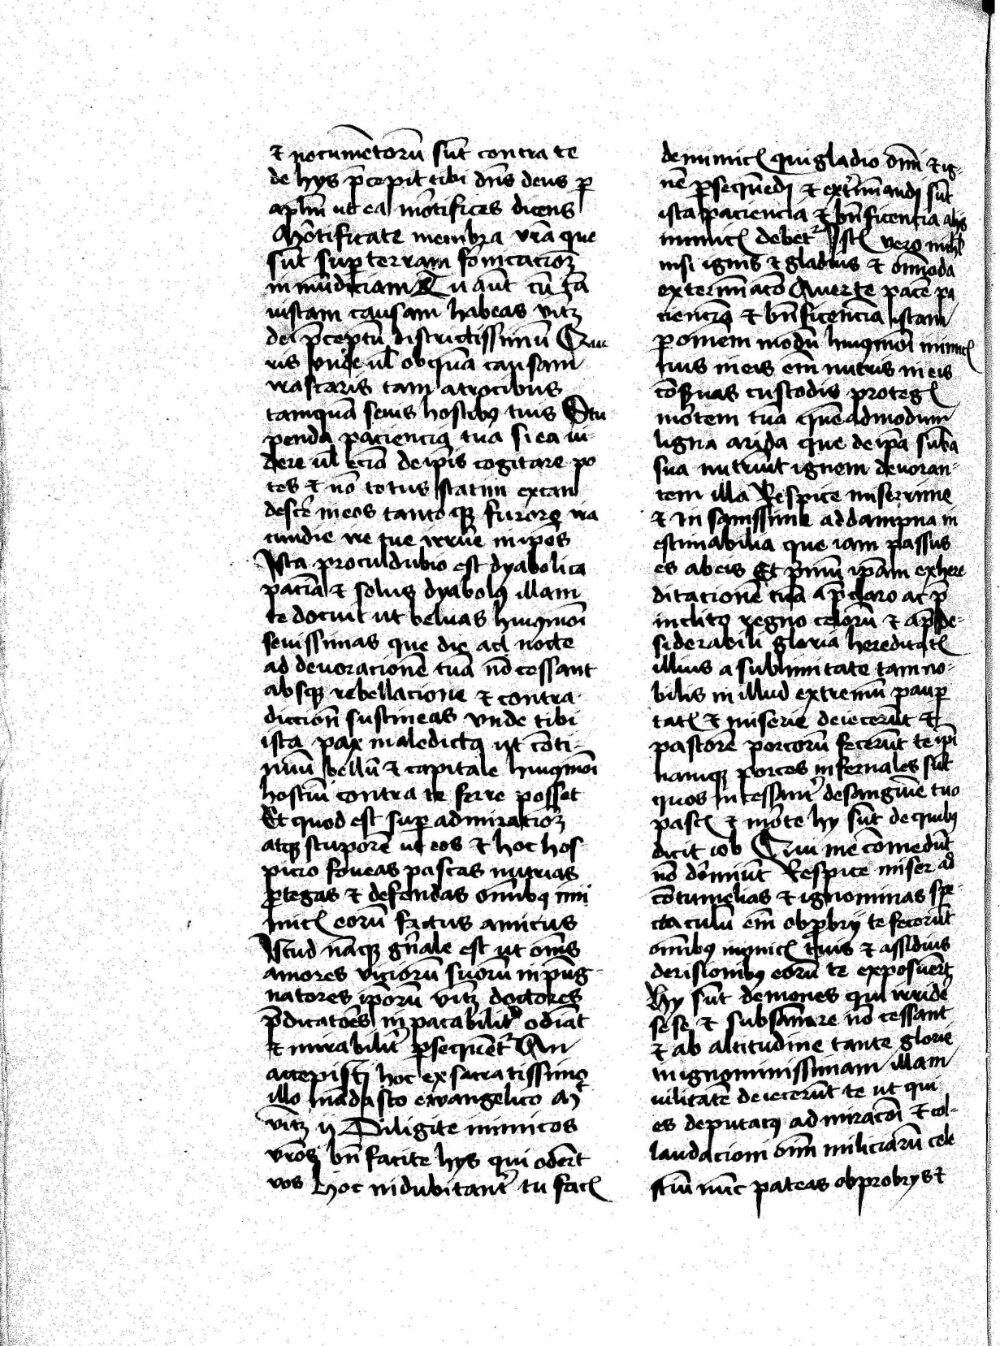 & nocumētorū sūt contra te
de hys p̄cepit tibi dn̄s deus ꝑ
apl̄m ut ea mōtifices dicens
Mōtificate membra vr̄a que
sūt suꝑ terram fonicacioꝫ
inmūdiciam Cū aūt tū tā
iustam causam habeas vitꝫ
dei p̄ceptū districtissimū Cur
ul̄ ob quā causam
irascaris tam atrocibus
tamquā seuis hostibꝫ tuis Stu
penda paciencia tua si ea ui
dere ul̄ eciā de ip̄is cogitare po
tes & nō totus statim excan
desc̄ in eos tantoqꝫ furore ira
cundie ire tue irrūe in ip̄os
Ista proculdubio est dyabolica
paciā & solus dyabolꝰ illam
te docuit ut beluas huiꝰmōi
seuissimas que die ac nocte
ad deuoracionē tuā nō cessant
absqꝫ rebellacione & contra
diccion̄ sustineas vnde tibi
ista pax maledicta ut cōti
nuū bellū & capitale huiꝰmōi
hostiū contra te ferre posset
Et quod est suꝑ admiracioꝫ
atqꝫ stuporē ut eos & hoc hos
picio foueas pascas nutrias
ꝓtegas & defendas om̄ibꝫ ini
micꝭ eorū factus amicus
Istud nāqꝫ gn̄ale est ut om̄s
amores viciorū suorū inpug
natores ip̄orū vitꝫ doctores
p̄dicatōes inpacabilit̄ odiāt
& mirabilit̄ ꝑsequēt̄ An
accepistꝭ hoc ex sacratissimo
illo mādato ewangelico
vitꝫ Diligite inimicos
vr̄os bn̄ facite hys qui odēt
vos Hoc indubitant̄ tu facꝭ
de inimicꝭ qui gladio & ig
nē ꝑsequēdi & ext̄minandi sūt
ista paciencia & bn̄ficencia
inimicꝭ debet̄ Istꝭ vero
nisi ignis & gladius & om̄oda
exterminacō Auerte pacē pa
cienciā & bn̄ficenciā istam
ꝑ om̄em modū huiꝰmōi inimicꝭ
tuis in eis em̄ nutris in eis
cōseruas custodis protegꝭ
mōtem tuā quēadmodum
ligna arida que de ip̄a sūba
sua nutriūt ignem deuoran
tem illa Respice miserrime
& addampna in
estimabilia que iam passus
es ab eis Et p̄mū ip̄am exhere
ditacionē tuā a p̄claro ac p̄
inclito regno celorū & a p̄de
siderabili gloria hereditatꝭ
illius a sublimitate tam no
bilis in illud extremū pauꝑ
tatꝭ & miserie deiecerūt &
pastorē porcorū fecerūt te ip̄i
namqꝫ porcos infernales sūt
quos incessant̄ de sangwīe tuo
pascꝭ & mōte hy sūt de quibꝫ
dicit iob Qui me comedūt
nō dōmiūt Respice miser ad
cōtumelias & ignominias spe
ctaculū em̄ obꝓbrij te fecerūt
om̄ibꝫ inimicꝭ tuis & assiduis
derisionibꝫ eorū te exposuert̄
Hy sūt demones qui irride
se & subsānare nō cessant
& ab altitudine tante glorie
in ignominissimam illam
uilitatē deiecerūt te ut qui
es deputatꝰ admiracōi & col
laudacioni om̄i miliciarū cele
stiū nūc pateas obprobrys &